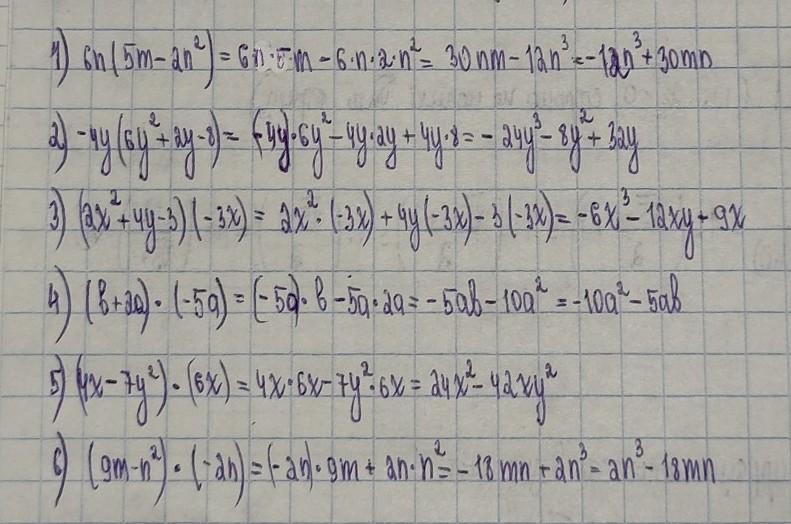 1) 6n(5m-2n²)= 6n·5·m - 6·n·2·n² = 30nm - 12n³ = -12n³ + 30mn
2) -4y(6y²+2y-8)= (-4y)·6y² - 4y·2y + 4y·8 = -24y³ - 8y² + 32y
3) (2x²+4y-3)(-3x) = 2x²·(-3x) + 4y(-3x) - 3(-3x) = -6x³ - 12xy + 9x
4) (b+2a)·(-5a) = (-5a)·b - 5a·2a = -5ab - 10a² = -10a² - 5ab
5) (4x-7y²)·(6x) = 4x·6x - 7y²·6x = 24x² - 42xy²
6) (9m-n²)·(-2n) = (-2n)·9m + 2n·n² = -18mn + 2n³ = 2n³ - 18mn